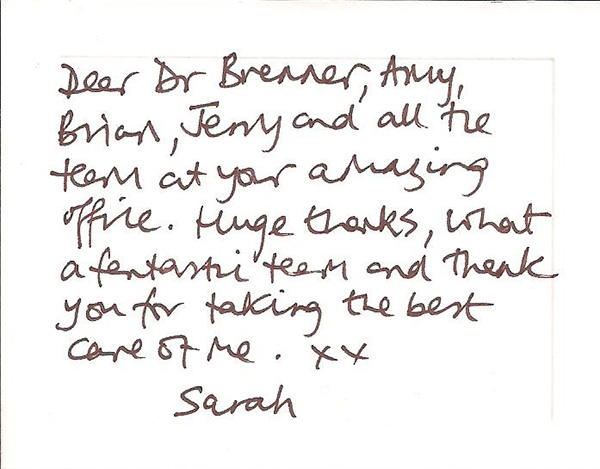 Dear Dr Brenner, Amy,
Brian, Jenny and all the
team at your amazing
office. Huge thanks, what
a fantastic team and thank
you for taking the best
care of me. xx
Sarah